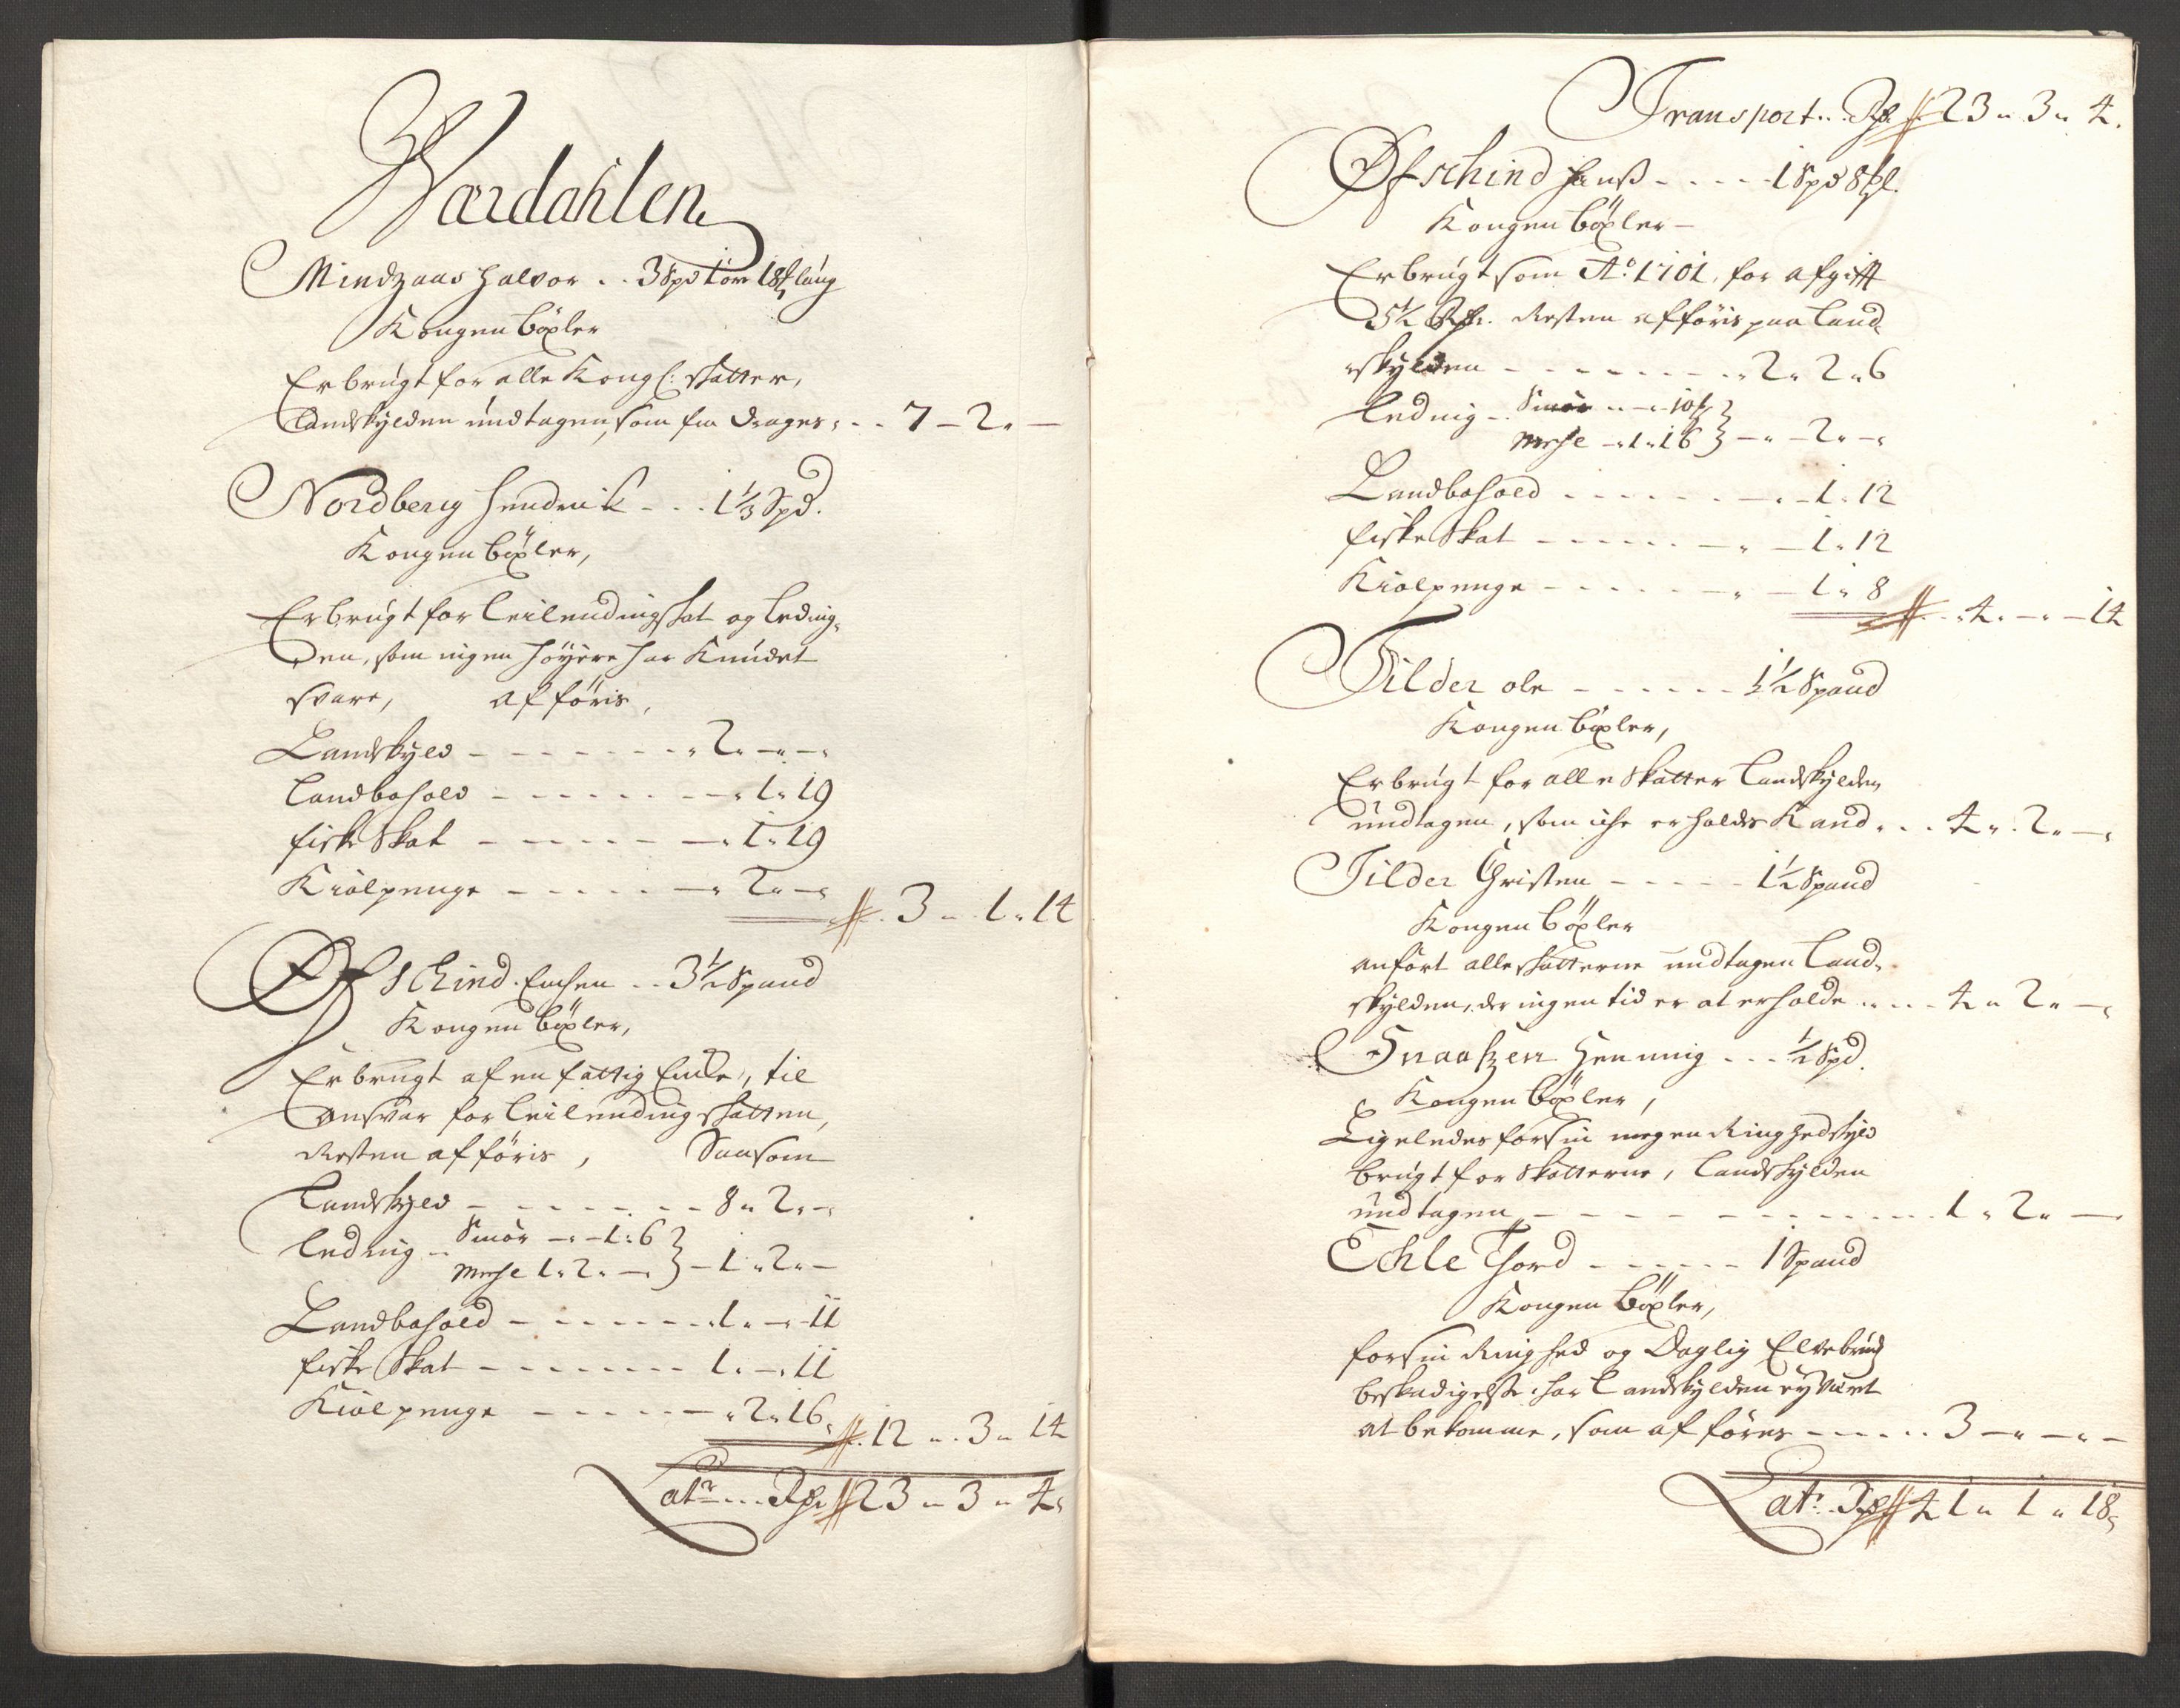 Wærdahlen
Mindzaas Halvor .. 3 Spd 1 ør 18 laug
Kongen böxler
Er brugt for alle Kongl: skatter,
Landskylden undtagen, som fra drages, .. 7 - 2 . -
Nordberg Hendrik - - . 1 1/3 Spd.
Kongen böxler,
Er brugt for Leilendingskat og Leding,
den, som ingen höyere har kundet
svare, afföris,
Landskyld - - - - - - - " 2 . - " - "
Landbohold - - - - - - - " 1 " 19
fiske Skat - - - - - - " 1 " 19
Kiölpenge - - - - - - " 2 " - "
3 " 1 " 14
Öfschind. Enchen .. 3 1/2 Spand
Kongen böxler,
Er brugt af en fattig Encke, til
ansvar for Leilendingskatten,
Resten afföris, Saasom
Landskyld - - - - - - - 8 " 2 " - "
Leding .. Smör - " - 1 " 6
Mehl 1 " 2 " - " } - 1 " 2 " -
Landbohold - - - - - - - 1 " - " 11
fiske Skat - - - - - - - 1 . - " 11
Kiölpenge - - - - - - " 2 " 16
12 " 3 " 14
Latr .. Rdr 23 " 3 " 4
Transport .. Rdr 23 " 3 " 4.
Öfschind Hans - - - - 1 Spd 8 pl.
Kongen böxler -
Er brugt som Ao. 1701, for afgift
5 1/2 Rdr. Resten afföris paa Land,
skylden - - - - - - - - " 2 " 2 " 6
Leding - Smör .. - " 10
Mehl - " 1 " 16 } - " - 2 " - "
Landbohold - - - - - - - " - 1 " 12
fiske Skat - - - - - - " - 1 " 12
Kiölpenge - - - - - - " - 1 " 8
4 . - " - 14
Tilder ole - - - - - - 1 1/2 Spand
Kongen böxler,
Er brugt for alle Skatter Landskylden
undtagen, som iche erholdes Kand . . . 4 " 2 " - "
Tilder Christen - - - - - 1 1/2 Spand
Kongen böxler
anfört alle skatterne undtagen Land,
skylden, der ingen tid er at erholde . . . . 4 " 2 " - "
Snaasen Henning - - - 1/2 Spd.
Kongen böxler,
Ligeledes for sin megen Ringhed skyld
brugt for Skatterne, Landskylden
undtagen - - - - - - - - - - - - 1 " 2 " -
Echle Thord - - - - - - 1 Spand
Kongen böxler,
for sin Ringhed og Daglig Elvebrud
beskadigelse, har Landskylden ey været
at bekomme, som afföres - - - - . . 3 - " - " -
Latr. Rdr 41 " 1 " 18